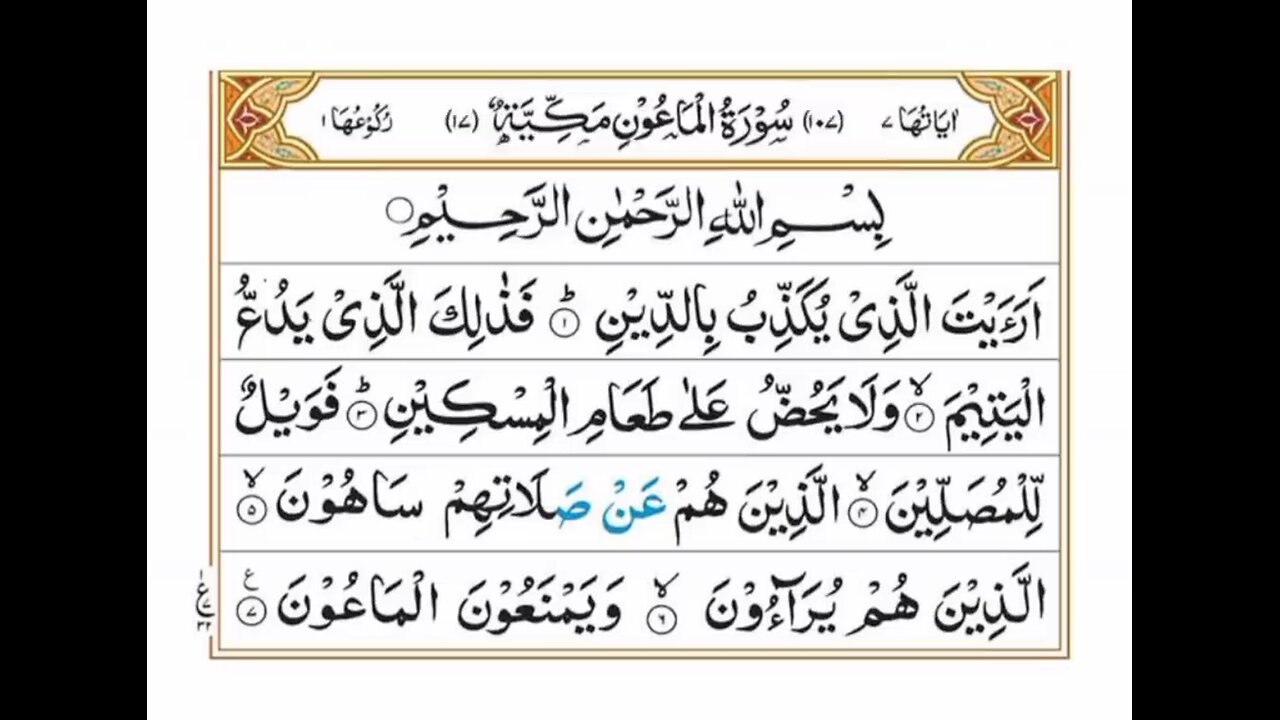 اٰيَاتُهَا ٧ (١٠٧) سُوْرَةُ الْمَاعُوْنِ مَكِّيَّةٌ (١٧) رُكُوْعُهَا ١
بِسْمِ اللّٰهِ الرَّحْمٰنِ الرَّحِيْمِ ۝
اَرَءَيْتَ الَّذِىْ يُكَذِّبُ بِالدِّيْنِ ؕ ١ فَذٰلِكَ الَّذِىْ يَدُعُّ
الْيَتِيْمَ ۙ ٢ وَلَا يَحُضُّ عَلٰى طَعَامِ الْمِسْكِيْنِ ؕ ٣ فَوَيْلٌ
لِّلْمُصَلِّيْنَ ۙ ٤ الَّذِيْنَ هُمْ عَنْ صَلَاتِهِمْ سَاهُوْنَ ۙ ٥
الَّذِيْنَ هُمْ يُرَآءُوْنَ ۙ ٦ وَيَمْنَعُوْنَ الْمَاعُوْنَ ٧ ع
١
ع ٧
٣٢